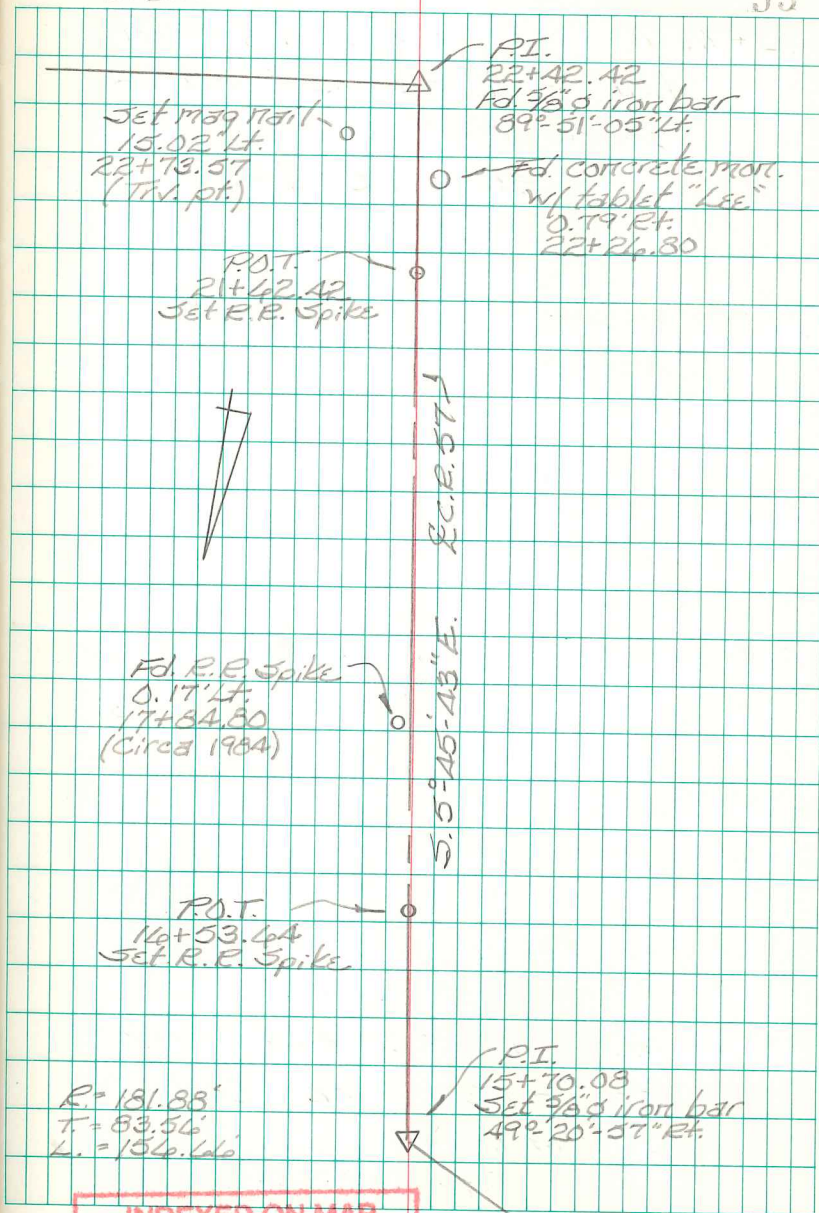 P.I.
22+42.42
Fd. 5/8" ø iron bar
89°-51'-05" Lt.
Set mag nail
15.02' Lt.
22+73.57
(Trv. pt.)
Fd. concrete mon.
w/ tablet "Lee"
0.79' Rt.
22+26.80
P.O.T.
21+42.42
Set R.R. Spike
℄ C.R. 57
S.5°-45'-43"E.
Fd. R.R. Spike
0.17' Lt.
17+84.80
(Circa 1984)
P.O.T.
16+53.64
Set R.R. Spike
P.I.
15+70.08
Set 5/8" ø iron bar
49°-20'-57" Rt.
R.= 181.88'
T.= 83.56'
L.= 156.66'
INDEXED ON MAP